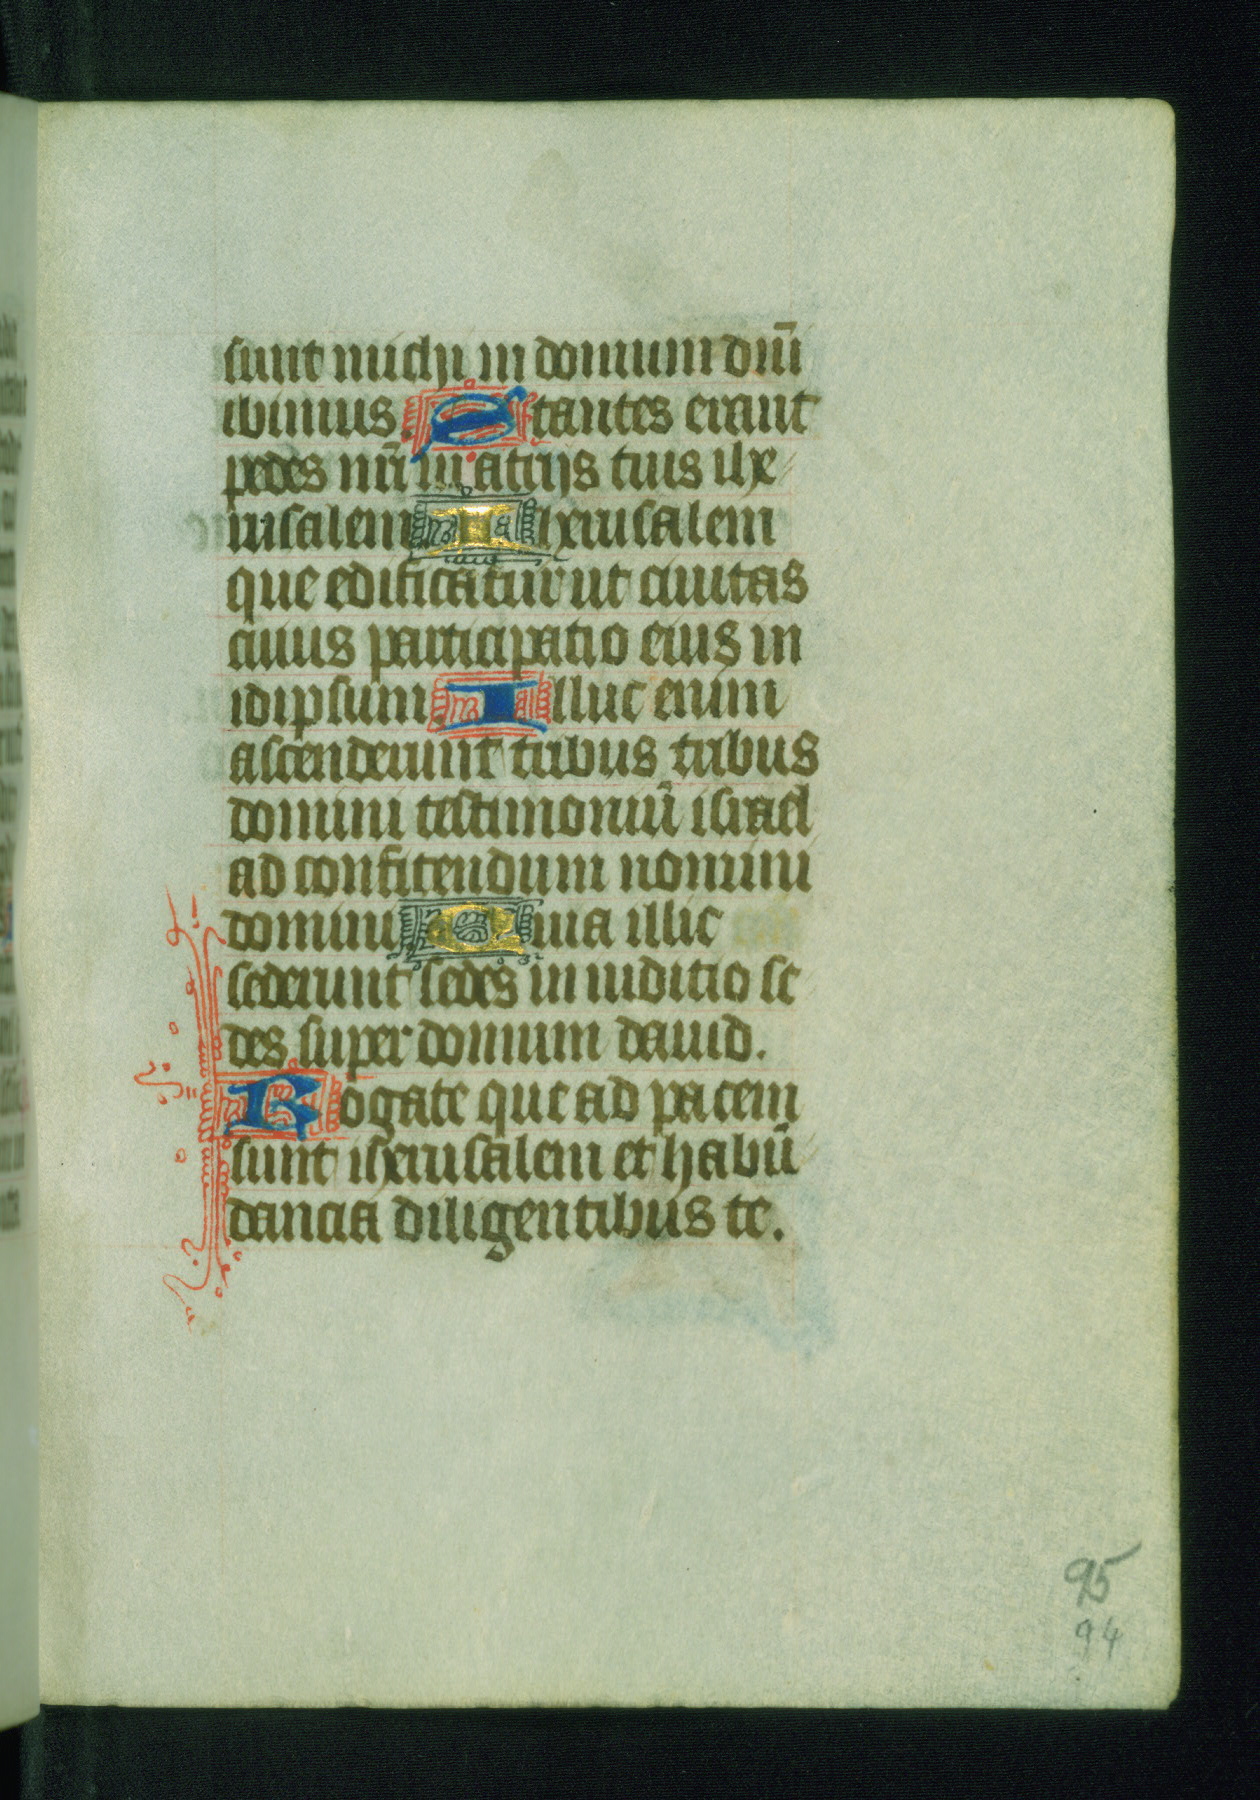 sunt michi in domum dnī
ibimus. Stantes erant
pedes nrī in atriis tuis ihe
rusalem. Iherusalem
que edificatur ut ciuitas
cuius participatio eius in
idipsum. Illuc enim
ascenderunt tribus tribus
domini testimoniū israel
ad confitendum nomini
domini. Quia illic
sederunt sedes in iuditio se
des super domum dauid.
Rogate que ad pacem
sunt iherusalem et habū
dancia diligentibus te.
95
94